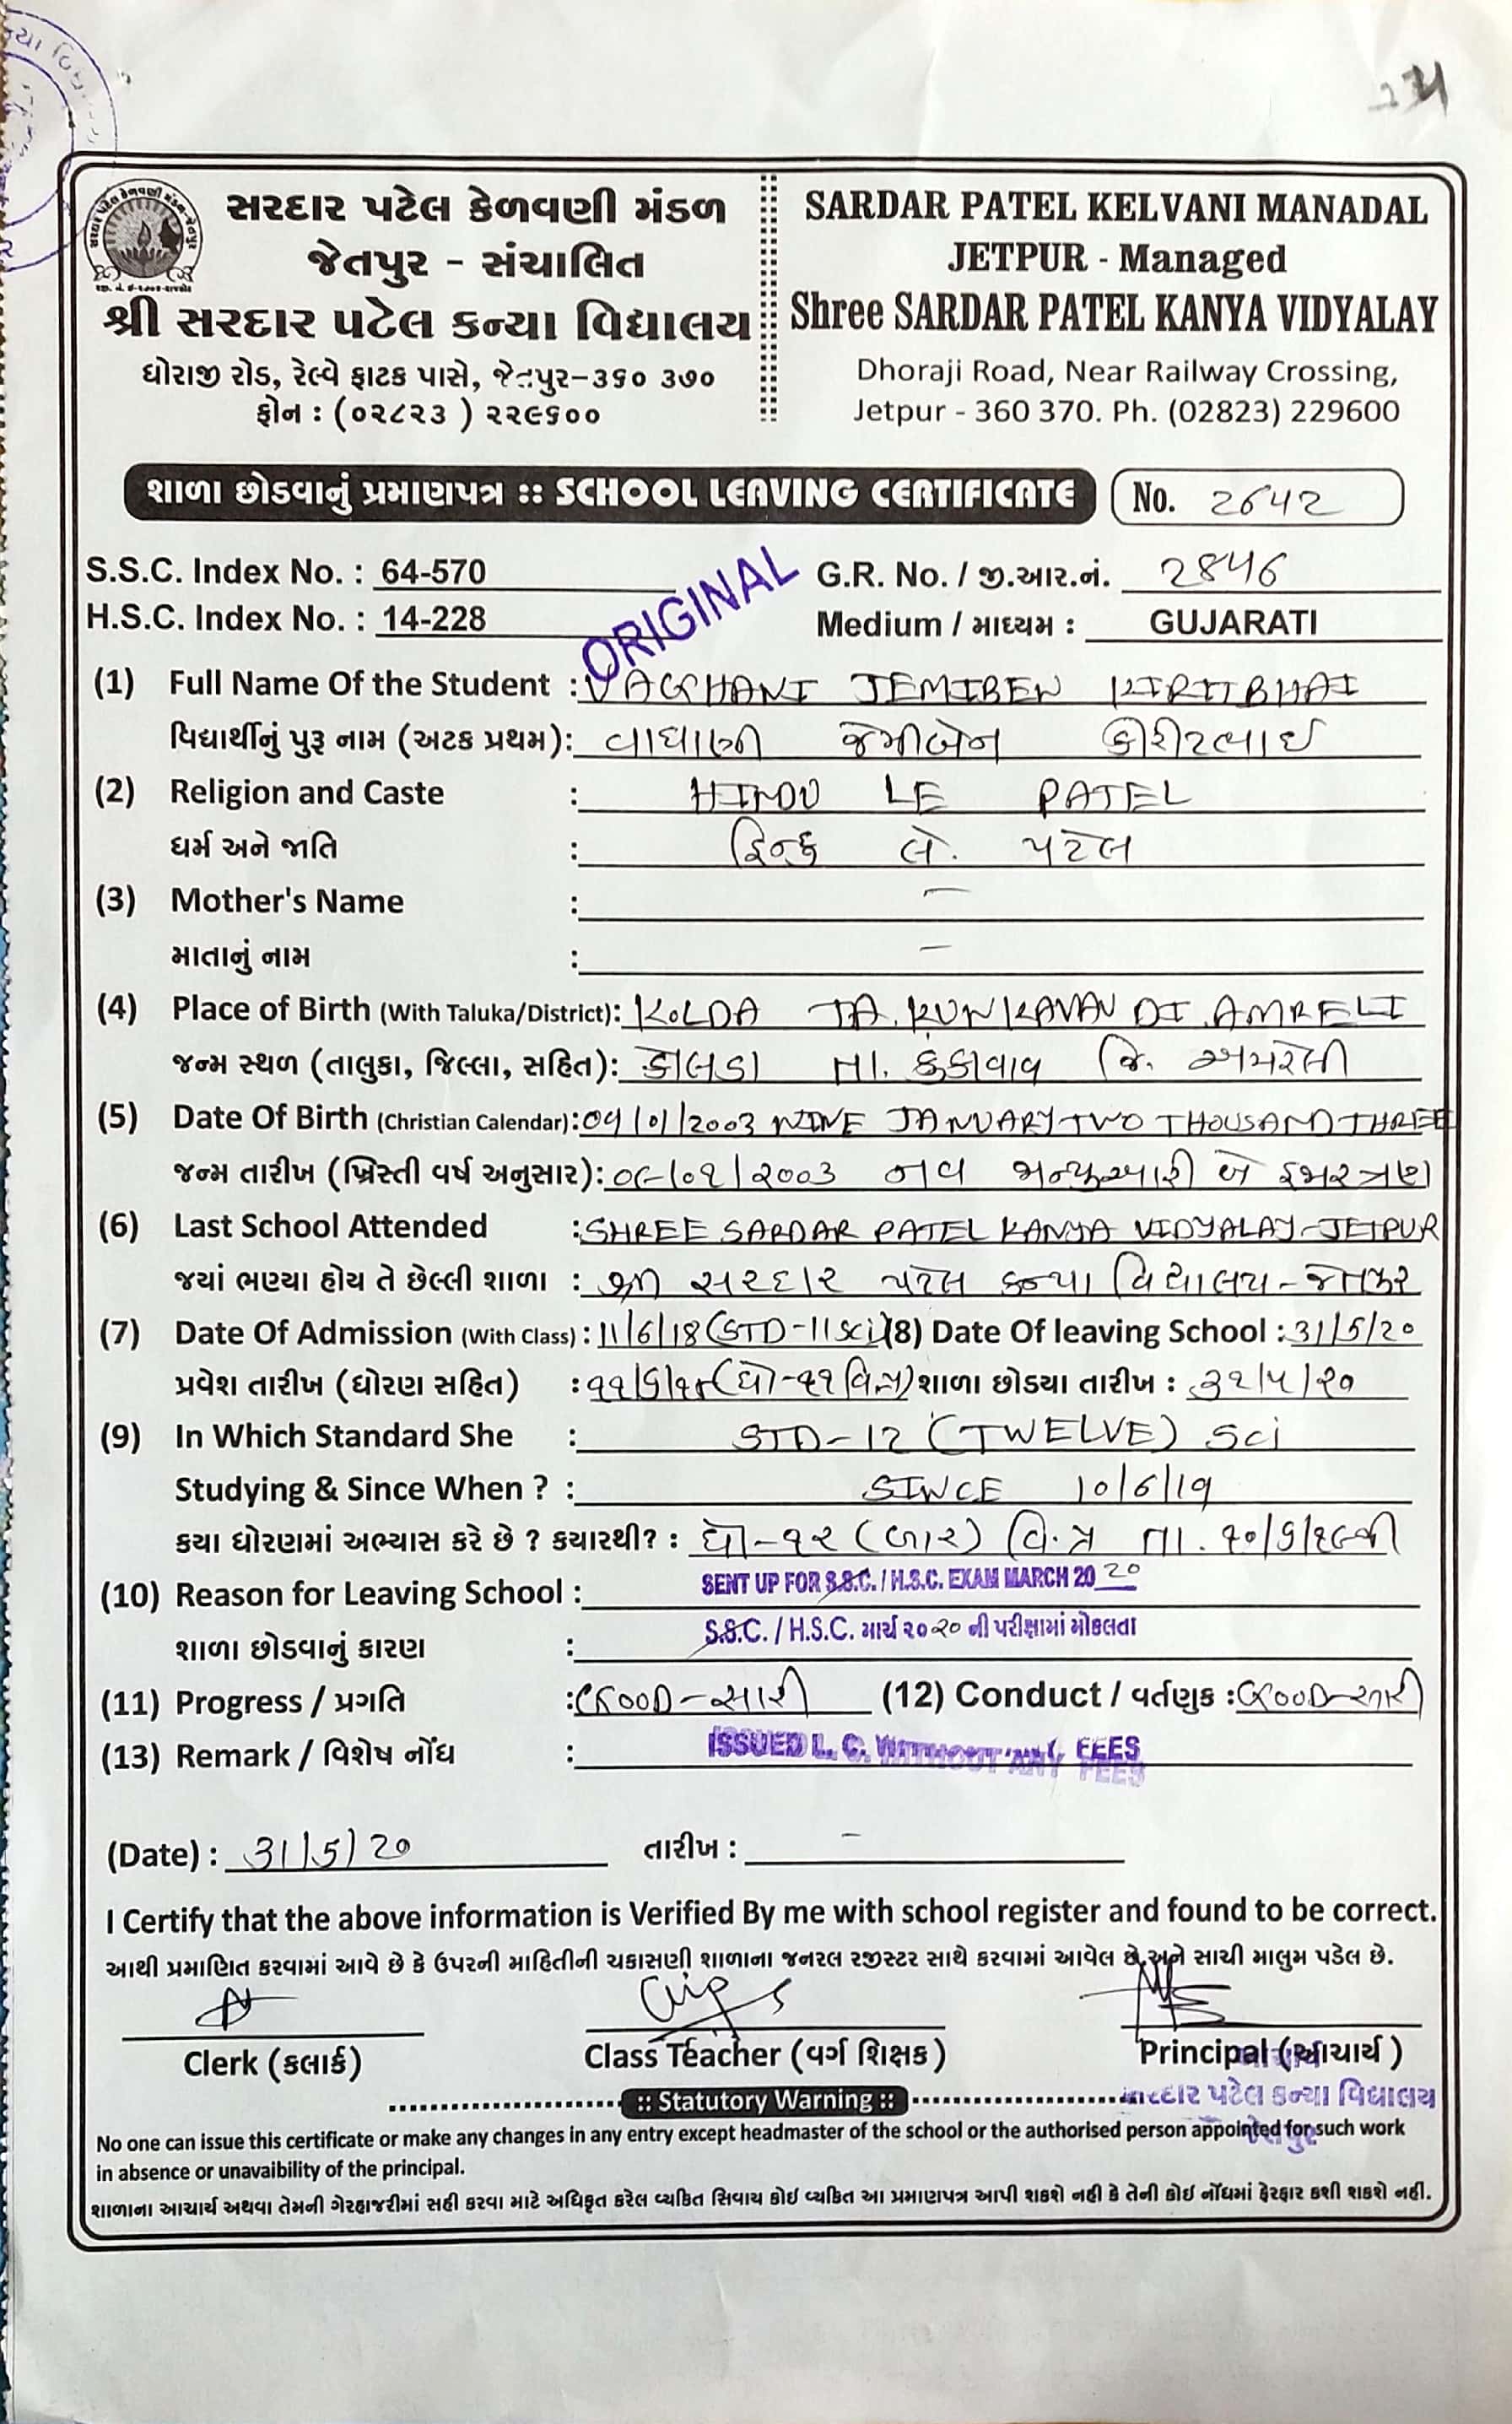 સરદાર પટેલ કેળવણી મંડળ
જેતપુર - સંચાલિત
શ્રી સરદાર પટેલ કન્યા વિદ્યાલય
ધોરાજી રોડ, રેલ્વે ફાટક પાસે, જેતપુર-૩૬૦ ૩૭૦
ફોન : (૦૨૮૨૩ ) ૨૨૯૬૦૦
SARDAR PATEL KELVANI MANADAL
JETPUR - Managed
Shree SARDAR PATEL KANYA VIDYALAY
Dhoraji Road, Near Railway Crossing,
Jetpur - 360 370. Ph. (02823) 229600
શાળા છોડવાનું પ્રમાણપત્ર :: SCHOOL LEAVING CERTIFICATE No. 2642
S.S.C. Index No. : 64-570 G.R. No. / જી.આર.નં. 2846
H.S.C. Index No. : 14-228 Medium / માધ્યમ : GUJARATI
ORIGINAL
(1) Full Name Of the Student : VAGHANI JEMIBEN KIRITBHAI
વિદ્યાર્થીનું પુરૂ નામ (અટક પ્રથમ): વાઘાણી જેમીબેન કીરીટભાઈ
(2) Religion and Caste : HINDU LE PATEL
ધર્મ અને જાતિ : હિન્દુ લે. પટેલ
(3) Mother's Name : –
માતાનું નામ : –
(4) Place of Birth (With Taluka/District): KOLDA TA. KUNKAVAV DI. AMRELI
જન્મ સ્થળ (તાલુકા, જિલ્લા, સહિત): કોલડા તા. કુંકાવાવ જિ. અમરેલી
(5) Date Of Birth (Christian Calendar): 09/01/2003 NINE JANUARY TWO THOUSAND THREE
જન્મ તારીખ (ખ્રિસ્તી વર્ષ અનુસાર): ૦૯/૦૧/૨૦૦૩ નવ જાન્યુઆરી બે હજાર ત્રણ
(6) Last School Attended : SHREE SARDAR PATEL KANYA VIDYALAY-JETPUR
જયાં ભણ્યા હોય તે છેલ્લી શાળા : શ્રી સરદાર પટેલ કન્યા વિદ્યાલય-જેતપુર
(7) Date Of Admission (With Class) : 11/6/18 (STD-11 Sci) (8) Date Of leaving School : 31/5/20
પ્રવેશ તારીખ (ધોરણ સહિત) : ૧૧/૬/૧૮ (ધો-૧૧ વિ.પ્ર) શાળા છોડયા તારીખ : ૩૧/૫/૨૦
(9) In Which Standard She : STD-12 (TWELVE) Sci
Studying & Since When ? : SINCE 10/6/19
કયા ધોરણમાં અભ્યાસ કરે છે ? કયારથી? : ધો-૧૨ (બાર) વિ.પ્ર તા. ૧૦/૬/૧૯થી
(10) Reason for Leaving School : SENT UP FOR S.S.C. / H.S.C. EXAM MARCH 2020
શાળા છોડવાનું કારણ : S.S.C. / H.S.C. માર્ચ ૨૦૨૦ ની પરીક્ષામાં મોકલતા
(11) Progress / પ્રગતિ : GOOD-સારી (12) Conduct / વર્તણુક : GOOD-સારી
(13) Remark / વિશેષ નોંધ : ISSUED L. C. WITHOUT ANY FEES
(Date) : 31/5/20 તારીખ : –
I Certify that the above information is Verified By me with school register and found to be correct.
આથી પ્રમાણિત કરવામાં આવે છે કે ઉપરની માહિતીની ચકાસણી શાળાના જનરલ રજીસ્ટર સાથે કરવામાં આવેલ છે.અને સાચી માલુમ પડેલ છે.
Clerk (કલાર્ક) Class Teacher (વર્ગ શિક્ષક) Principal (આચાર્ય )
:: Statutory Warning ::
સરદાર પટેલ કન્યા વિદ્યાલય
No one can issue this certificate or make any changes in any entry except headmaster of the school or the authorised person appointed for such work
in absence or unavaibility of the principal.
શાળાના આચાર્ય અથવા તેમની ગેરહાજરીમાં સહી કરવા માટે અધિકૃત કરેલ વ્યકિત સિવાય કોઈ વ્યકિત આ પ્રમાણપત્ર આપી શકશે નહી કે તેની કોઈ નોંધમાં ફેરફાર કશી શકશે નહીં.